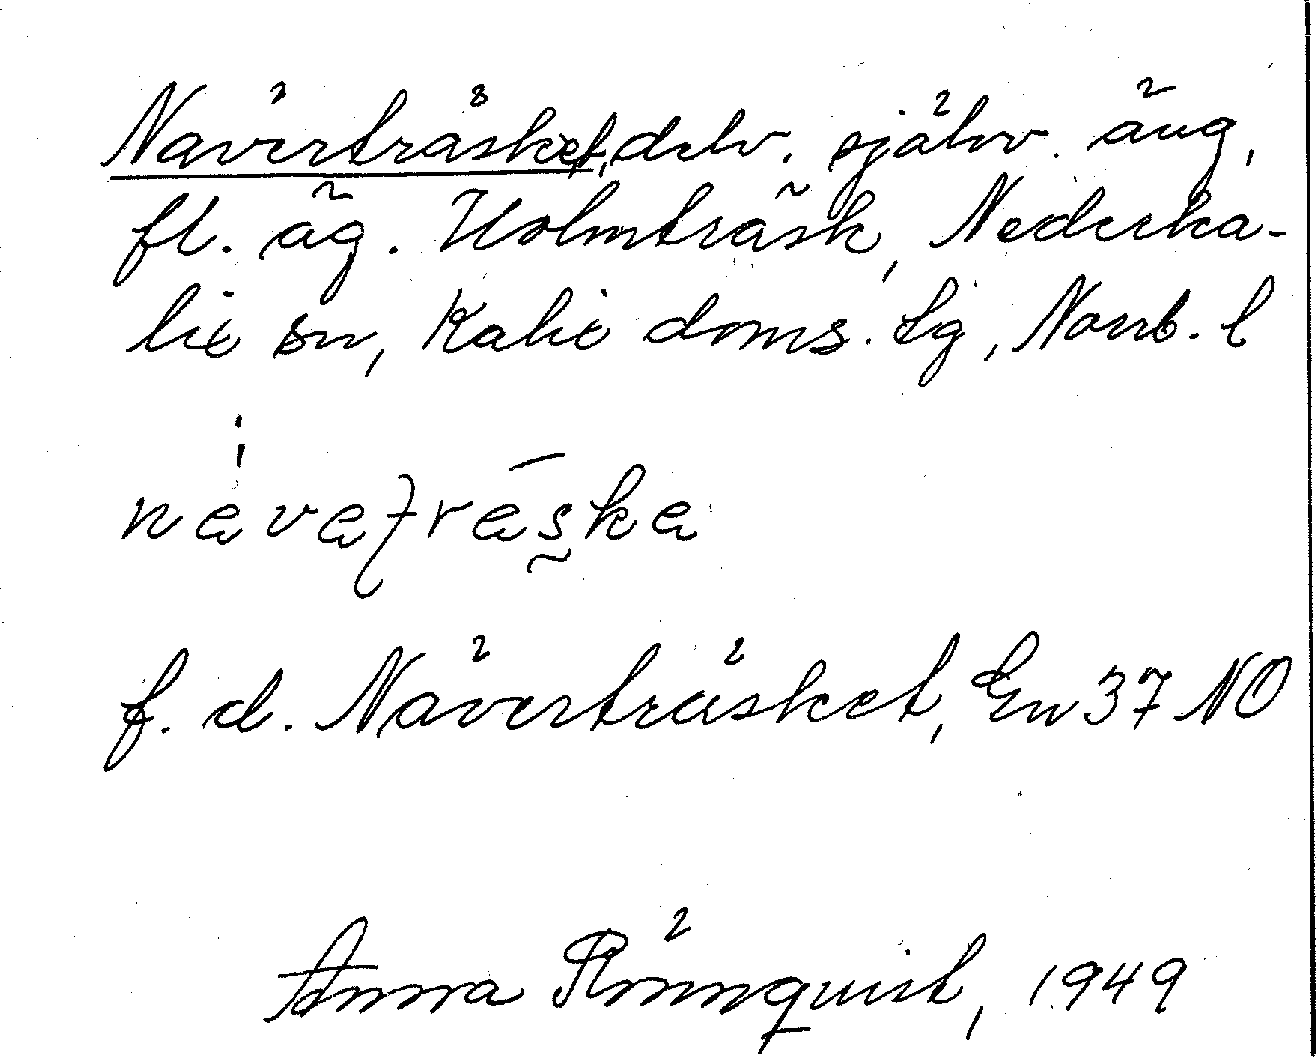 Näverträsket, delv. självv. äng,
fl. äg. Holmträsk, Nederka-
lix sn, Kalix doms. tg, Norrb. l
f. d. Näverträsket, En 37 NO
Anna Rönnquist, 1949